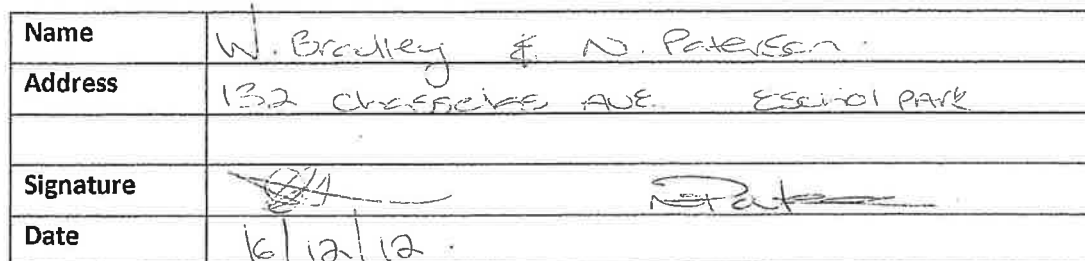 Name W. Bradley & N. Paterson.
Address 132 AVE ESCHOL PARK
Signature
Date 16/12/12.